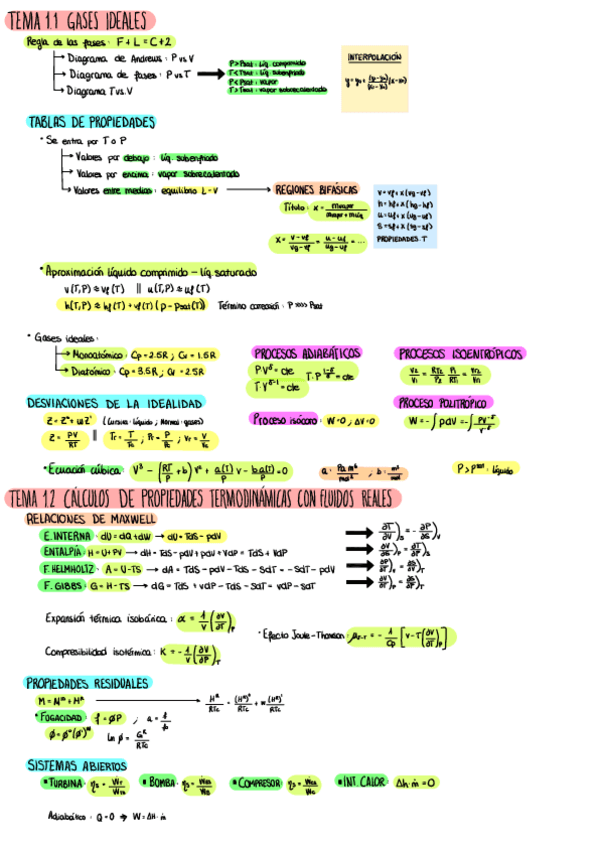 TEMA 1.1 GASES IDEALES
Regla de las fases: F + L = C + 2
→ Diagrama de Andrews: P vs. V
→ Diagrama de fases: P vs T
→ Diagrama T vs. V
P > Psat: líq. comprimido
T < Tsat: líq. subenfriado
P < Psat: vapor
T > Tsat: vapor sobrecalentado
INTERPOLACIÓN
TABLAS DE PROPIEDADES
• Se entra por T o P
→ Valores por debajo: líq. subenfriado
→ Valores por encima: vapor sobrecalentado
→ Valores entre medias: equilibrio L-V → REGIONES BIFÁSICAS
Título: x = mvapor / (mvapor + mliq)
x = (v - vℓ)/(vg - vℓ) = (u - uℓ)/(ug - uℓ) = ...
v = vℓ + x (vg - vℓ)
h = hℓ + x (hg - hℓ)
u = uℓ + x (ug - uℓ)
s = sℓ + x (sg - sℓ)
PROPIEDADES T
• Aproximación líquido comprimido - líq. saturado
v(T,P) ≈ vℓ(T) || u(T,P) ≈ uℓ(T)
h(T,P) ≈ hℓ(T) + vℓ(T) (p - psat(T)) Término corrección: P >>>> Psat
• Gases ideales:
→ Monoatómico: Cp = 2.5R ; Cv = 1.5R
→ Diatómico: Cp = 3.5R ; Cv = 2.5R
PROCESOS ADIABÁTICOS
P·V^γ = cte
T·V^(γ-1) = cte
T·P^((1-γ)/γ) = cte
PROCESOS ISOENTRÓPICOS
PROCESO POLITRÓPICO
DESVIACIONES DE LA IDEALIDAD
Z = Z° + ωZ' (Cursiva: líquido ; Normal: gases)
Z = PV/RT || Tr = T/Tc ; Pr = P/Pc ; Vr = V/Vc
Proceso isócoro: W = 0 ; ΔV = 0
• Ecuación cúbica: V³ - (RT/P + b) V² + a(T)/P V - b a(T)/P = 0
a: Pa m⁶/mol² ; b: m³/mol
P > Psat: líquido
TEMA 1.2 CÁLCULOS DE PROPIEDADES TERMODINÁMICAS CON FLUIDOS REALES
RELACIONES DE MAXWELL
E. INTERNA: dU = dQ + dW → dU = TdS - pdV → ∂T/∂V)S = - ∂P/∂S)V
ENTALPÍA: H = U + PV → dH = TdS - pdV + pdV + VdP = TdS + VdP → ∂V/∂S)P = ∂T/∂P)S
F. HELMHOLTZ: A = U - TS → dA = TdS - pdV - TdS - SdT = - SdT - pdV
F. GIBBS: G = H - TS → dG = TdS + VdP - TdS - SdT = VdP - SdT
Expansión térmica isobárica: α = 1/V (∂V/∂T)P
• Efecto Joule-Thomson: μJ-T = - 1/Cp [V - T(∂V/∂T)P]
Compresibilidad isotérmica: K = - 1/V (∂V/∂P)T
PROPIEDADES RESIDUALES
• FUGACIDAD: f = ØP
SISTEMAS ABIERTOS
• TURBINA:
• BOMBA:
• COMPRESOR:
• INT. CALOR: Δh·ṁ = 0
Adiabático: Q = 0 → W = ΔH·ṁ